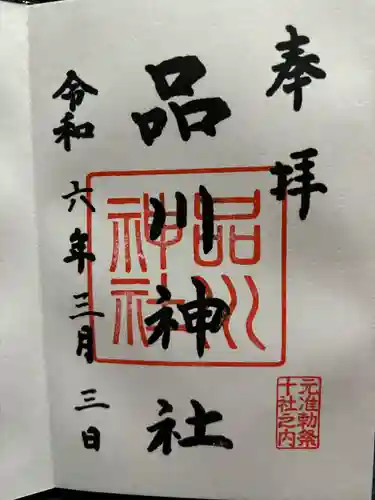 奉拝
品川神社
品川神社
元准勅祭
十社之内
令和六年三月三日